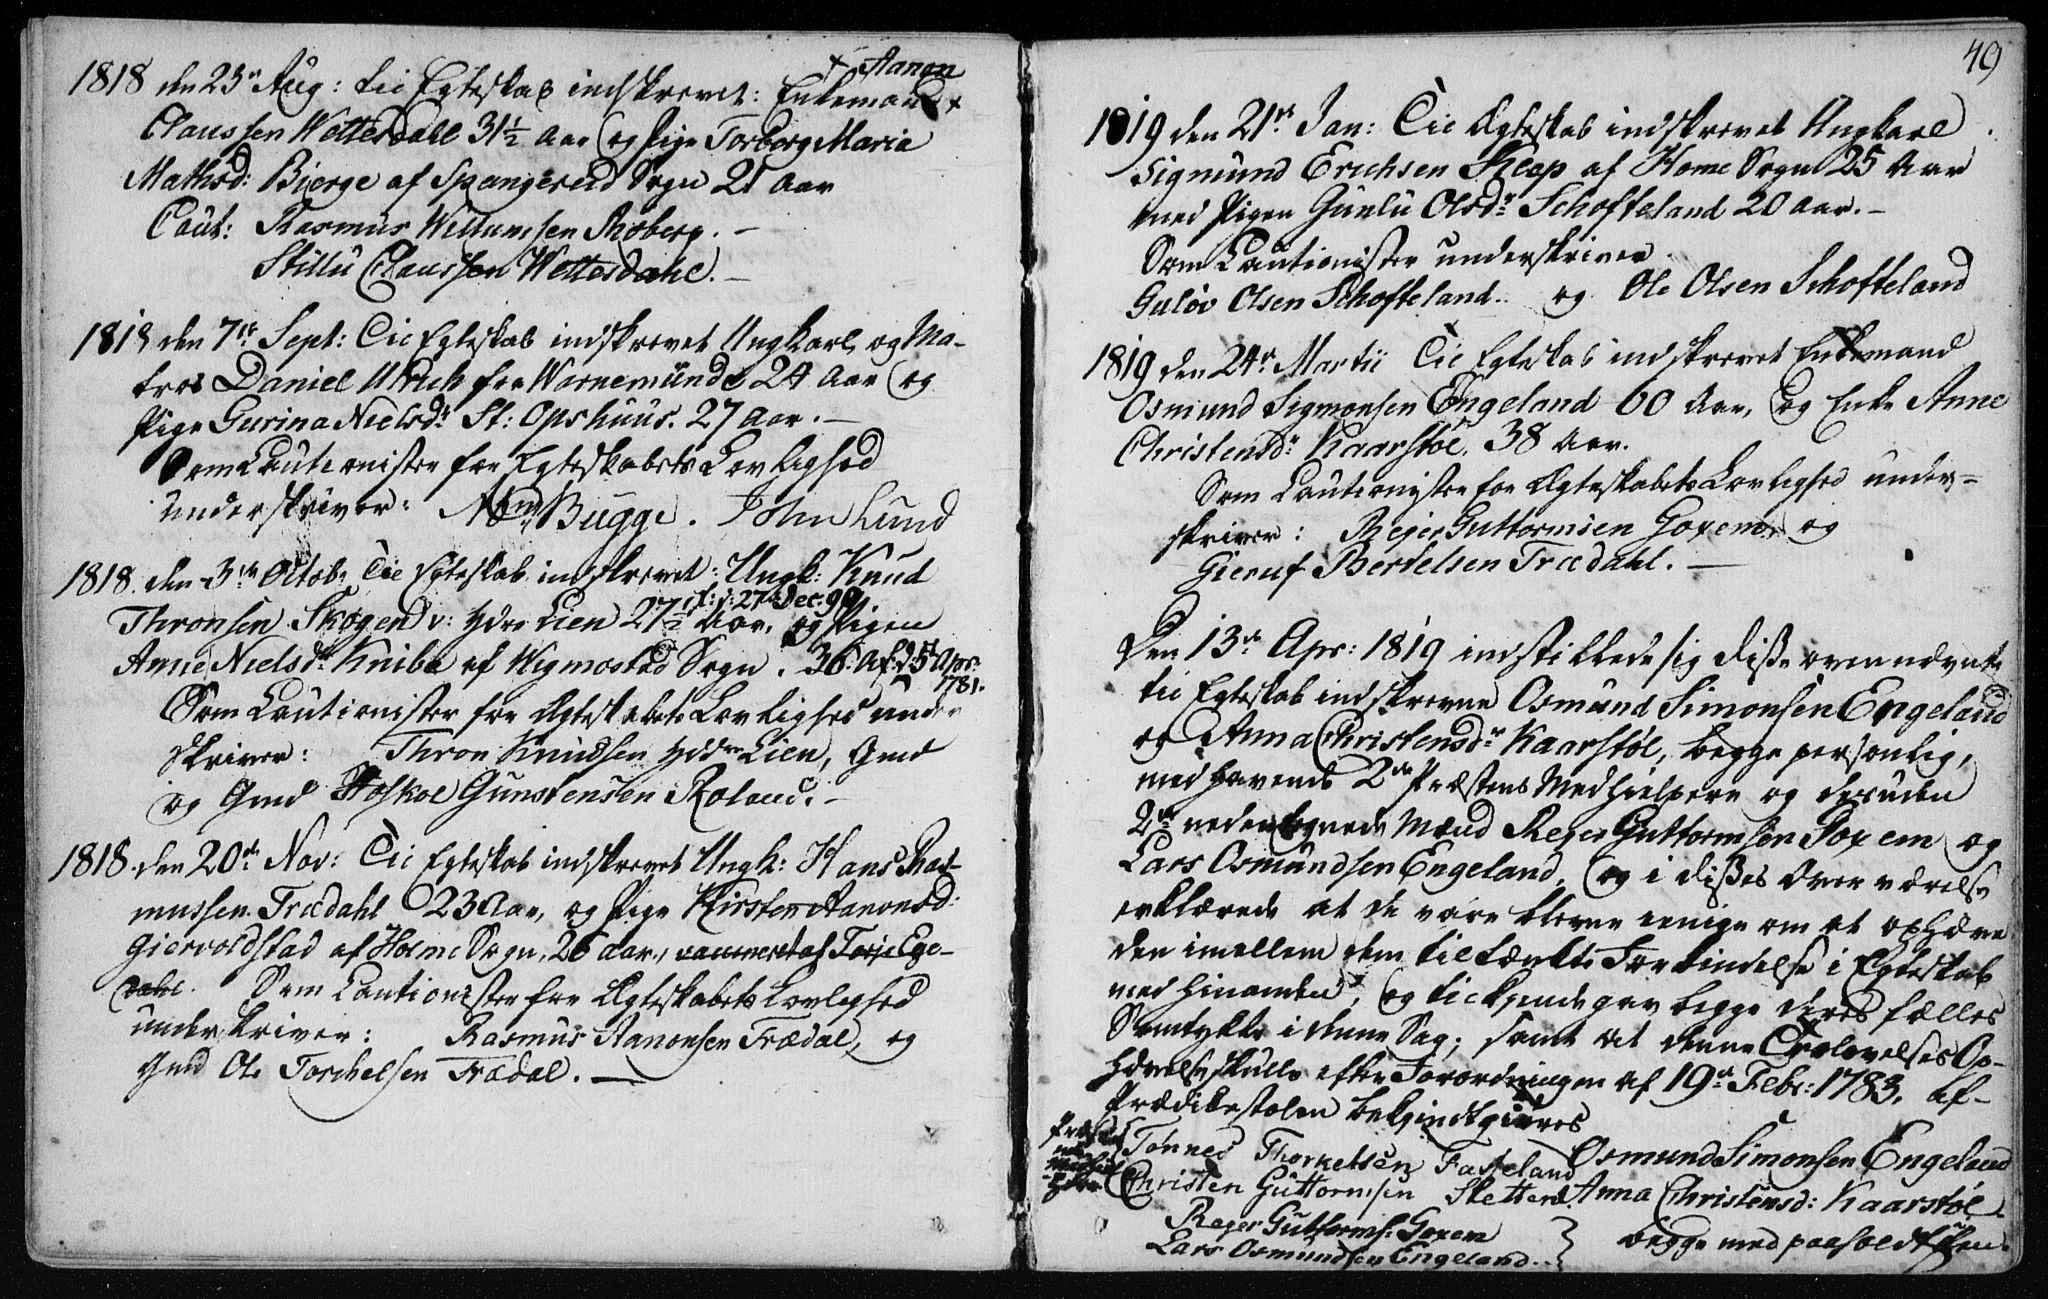 + Aanon
1818 den 23de Aug: til Egteskab indskrevet: Enkemand +
Claussen Wetterdall 31½ Aar og Pige Torborg Maria
Mathisd: Bierge af Spangereid Sogn 21 Aar
Caut: Rasmus Willumsen Roberg. –
Stillu Claussen Wetterdahl. –
1818 den 7de Sept: Til Egteskab indskrevet Ungkarl og Ma-
tros Daniel Ulrich fra Warnemünde 24 Aar og
Pige Gurina Nielsdr St: Opshuus. 27 Aar. –
Som Cautionister for Egteskabets Lovlighed
underskriver: Bugge. John Lund
1818. den 3de Octob: Til Egteskab indskrevet: Ungk: Knud
Thronsen Skogen v: Ydre Lien 27½ Aar, f: d: 27 Dec. 90 og Pigen
Anne Nielsdr Kniba af Wigmostad Sogn. 36: A f: d 25 Apr: 1781.
Som Cautionister for Ægteskabets Lovlighed under
skriver: Thron Knudsen Yddre Lien, Gmd
og Gmd Hoskol Gunstensen Roland. –
1818. den 20de Nov: Til Egteskab indskrevet Ungk: Hans Ras-
mussen Trædahl 23 Aar, og Pige Kirsten Aanonsd:
Giervoldstad af Holme Sogn, 26 Aar, vaccineret af Torje Ege-
dahl. Som Cautionister for Ægteskabets Lovlighed
underskriver: Rasmus Aanonsen Trædal, og
Gmd Ole Torchelsen Trædal. –
49
1819 den 21de Jan: Til Ægteskab indskrevet Ungkarl
Sigmund Erichsen Kleep af Home Sogn 25 Aar
med Pigen Gunlu Olsdr Schofteland 20 Aar. –
Som Cautionister underskriver
Guløv Olsen Schofteland. og Ole Olsen Schofteland
1819 den 24de Martii Til Egteskab indskrevet Enkemand
Osmund Sigmonsen Engeland 60 Aar, og Enke Anne
Christensdr Kaarstøl, 38 Aar.
Som Cautionister for Ægteskabets Lovlighed under-
skriver: Rejer Guttormsen Goxem og
Gieruf Bertelsen Trædahl. –
Den 13de Apr: 1819 indstillede sig disse ovennævnte
til Egteskab indskrevne Osmund Simonsen Engeland
og Anna Christensdr Kaarstøl, begge personlig,
medhavende 2de Præstens Medhielpere og desuden
2de nedentegnede Mænd Rejer Guttormsen Goxem og
Lars Osmundsen Engeland, og i disses Overværelse
erklærede at de vare blevne eenige om at ophæve
den imellem dem tiltænkte Forbindelse i Egteskab
med hinanden, og tilkjendegav begge deres fælles
Samtykke i denne Sag; samt at denne Trolovelses Op-
hævelse skulle efter Forordningen af 19de Febr: 1783. af-
Prædikestolen bekjendtgiøres
Præstens Medhiel- Tønnes Thorkelsen Fasseland Osmund Simonsen Engeland
pere Christen Guttormsen Sketteræ Anna Christensd: Kaarstøl
Rejer Guttorms: Goxem
Lars Osmundsen Engeland. } begge med paaholdt Pen.